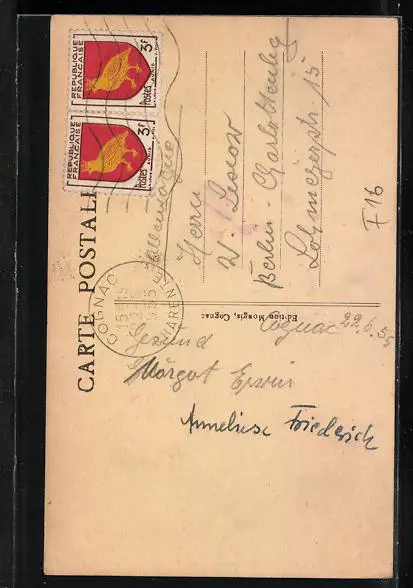 CARTE POSTALE
REPUBLIQUE FRANÇAISE
3F
Postes
REPUBLIQUE FRANÇAISE
3F
Postes
COGNAC
15
CHARENTE
Herrn
W.
Berlin-Charlottenburg
15
F16
Edition Mongis, Cognac
Cognac 22.6.55
Gesund
Margot Erwin
Anneliese Friederich